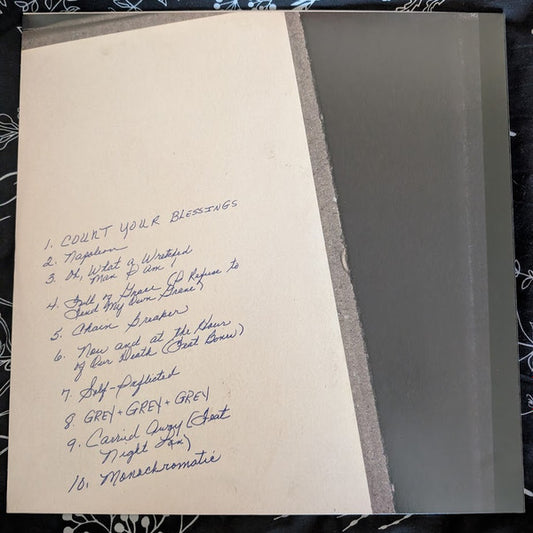 1. COUNT YOUR BLESSINGS
2. Napoleon
3. Oh, What a Wretched
Man I Am
4. Fall in Grace (I Refuse to
Tend My Own Grave)
5. Chain Breaker
6. Now and at the Hour
of Our Death (Feat. Bonus)
7. Self-Inflicted
8. GREY + GREY + GREY
9. Carried Away (Feat
Night Lox)
10. Monochromatic